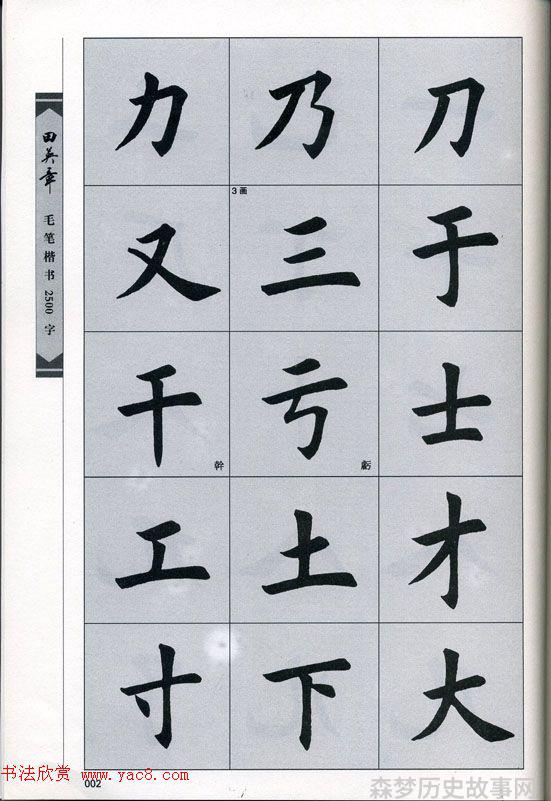 田英章
毛笔楷书 2500 字
力 乃 刀
3画
又 三 于
干 亏 士
幹 虧
工 土 才
寸 下 大
书法欣赏 www.yac8.com
002
森梦历史故事网